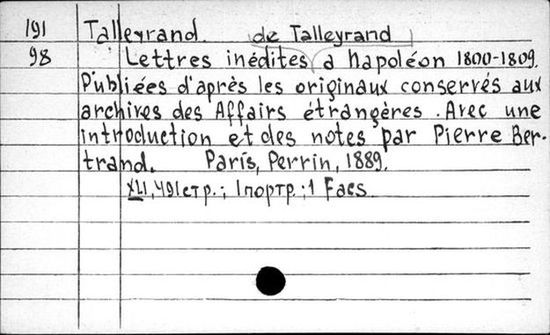 191 Talleyrand.
98 Lettres inédites (de Talleyrand) a Napoléon 1800-1809.
Publiées d'après les originaux conservés aux
archives des Affairs étrangères. Avec une
introduction et des notes par Pierre Ber-
trand. Paris, Perrin, 1889.
XLI, 491 стр.; 1 портр.; 1 Facs